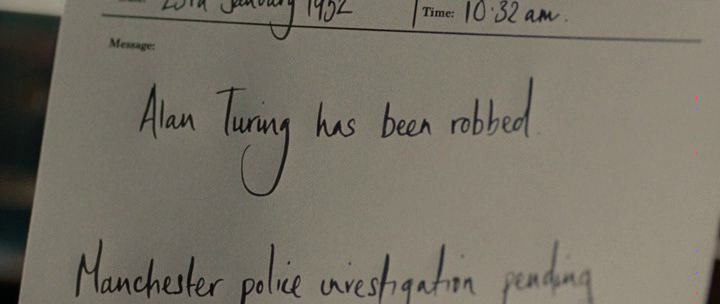 January 1952 Time: 10:32 am.
Message:
Alan Turing has been robbed.
Manchester police investigation pending